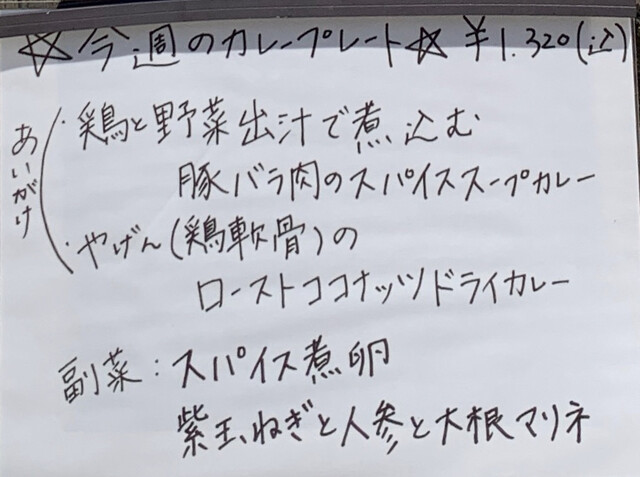 ☆今週のカレープレート☆ ¥1.320(込)
あいがけ
・鶏と野菜出汁で煮込む
豚バラ肉のスパイススープカレー
・やげん(鶏軟骨)の
ローストココナッツドライカレー
副菜:スパイス煮卵
紫玉ねぎと人参と大根マリネ